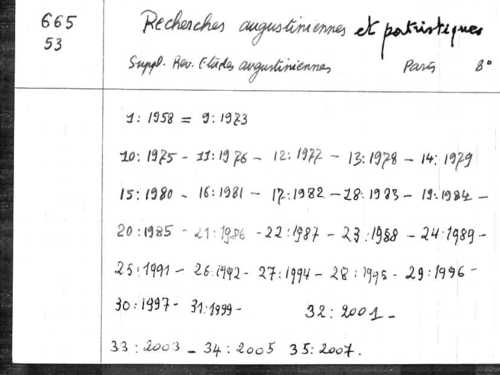 665
53
Recherches augustiniennes et patristiques
Suppl. Rev. Etudes augustiniennes Paris 8°
1: 1958 = 9: 1973
10: 1975 - 11: 1976 - 12: 1977 - 13: 1978 - 14: 1979
15: 1980 - 16: 1981 - 17: 1982 - 18: 1983 - 19: 1984 -
20: 1985 - 21: 1986 - 22: 1987 - 23: 1988 - 24: 1989 -
25: 1991 - 26: 1992 - 27: 1994 - 28: 1995 - 29: 1996 -
30: 1997 - 31: 1999 - 32: 2001 -
33: 2003 - 34: 2005 35: 2007.